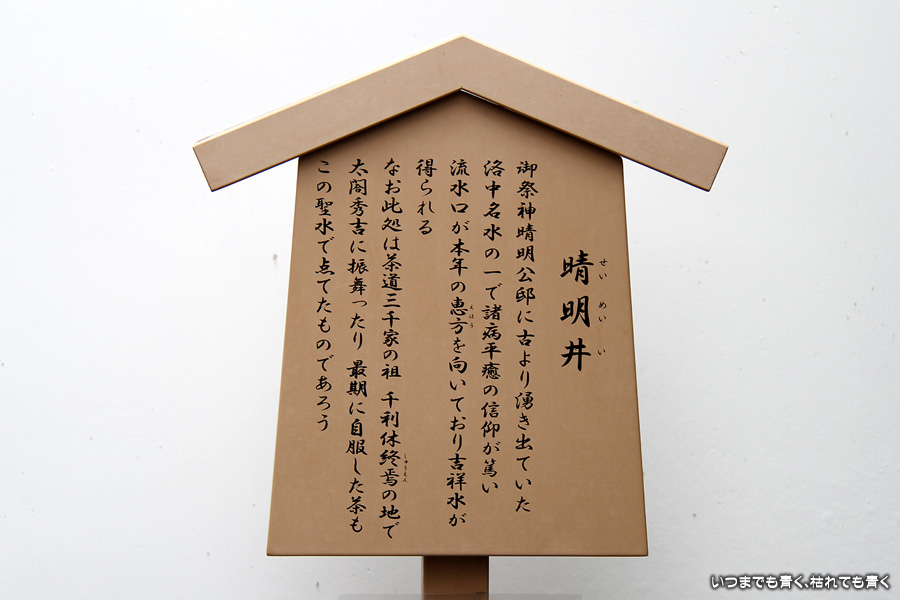 晴明井
せい めい い
御祭神晴明公邸に古より湧き出ていた
洛中名水の一で諸病平癒の信仰が篤い
流水口が本年の恵方を向いており吉祥水が
えほう
得られる
なお此処は茶道三千家の祖 千利休終焉の地で
しゅうえん
太閤秀吉に振舞ったり 最期に自服した茶も
この聖水で点てたものであろう
いつまでも青く、枯れても青く